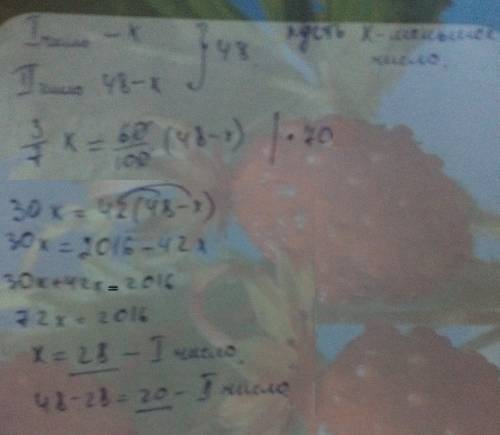 I число – x } 48. пусть x – меньшее
II число 48-x число.
3/7 x = 60/100 (48-x) | · 70
30x = 42(48-x)
30x = 2016 - 42x
30x+42x = 2016
72x = 2016
x = 28 - I число.
48-28 = 20 - II число